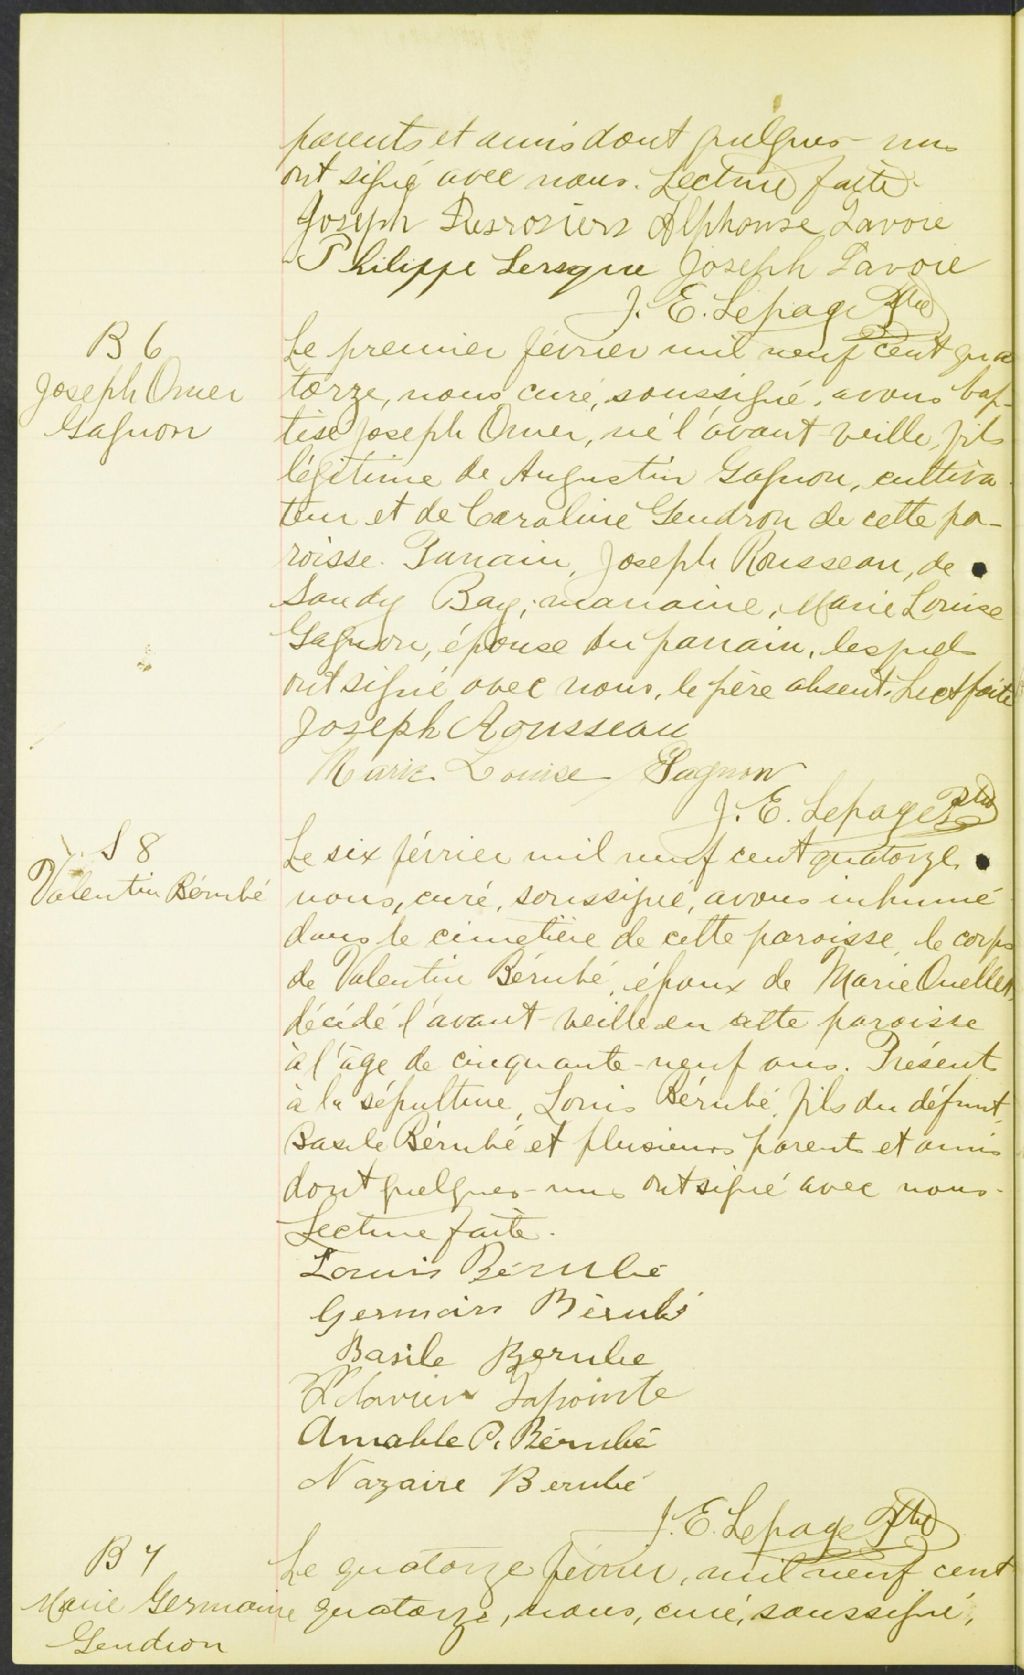 parents et amis dont quelques-uns
ont signé avec nous. Lecture faite.
Joseph Desrosiers Alphonse Lavoie
Philippe Joseph Lavoie
J. E. Lepage Ptre
B 6
Joseph Omer
Gagnon
Le premier février mil neuf cent qua
torze, nous curé, soussigné, avons bap-
tisé Joseph Omer, né l'avant-veille, fils
légitime de Augustin Gagnon, cultiva
teur et de Caroline Gendron de cette pa-
roisse. Parrain, Joseph Rousseau, de
Sandy Bay; marraine, Marie Louise
Gagnon, épouse du parrain, lesquels
ont signé avec nous, le père absent. Lect faite
Joseph Rousseau
Marie Louise Gagnon
J. E. Lepage Ptre
S 8
Valentin Bérubé
Le six février mil neuf cent quatorze
nous, curé, soussigné, avons inhumé
dans le cimetière de cette paroisse, le corps
de Valentin Bérubé, époux de Marie Ouellet,
décédé l'avant-veille en cette paroisse
à l'âge de cinquante-neuf ans. Présents
à la sépulture, Louis Bérubé, fils du défunt,
Basile Bérubé et plusieurs parents et amis
dont quelques-uns ont signé avec nous.
Lecture faite.
Louis Bérubé
Germain Bérubé
Basile Berube
Lapointe
Amable P. Bérubé
Nazaire Berubé
J. E. Lepage Ptre
B 7
Marie Germaine
Gendron
Le quatorze février, mil neuf cent
quatorze, nous, curé, soussigné,